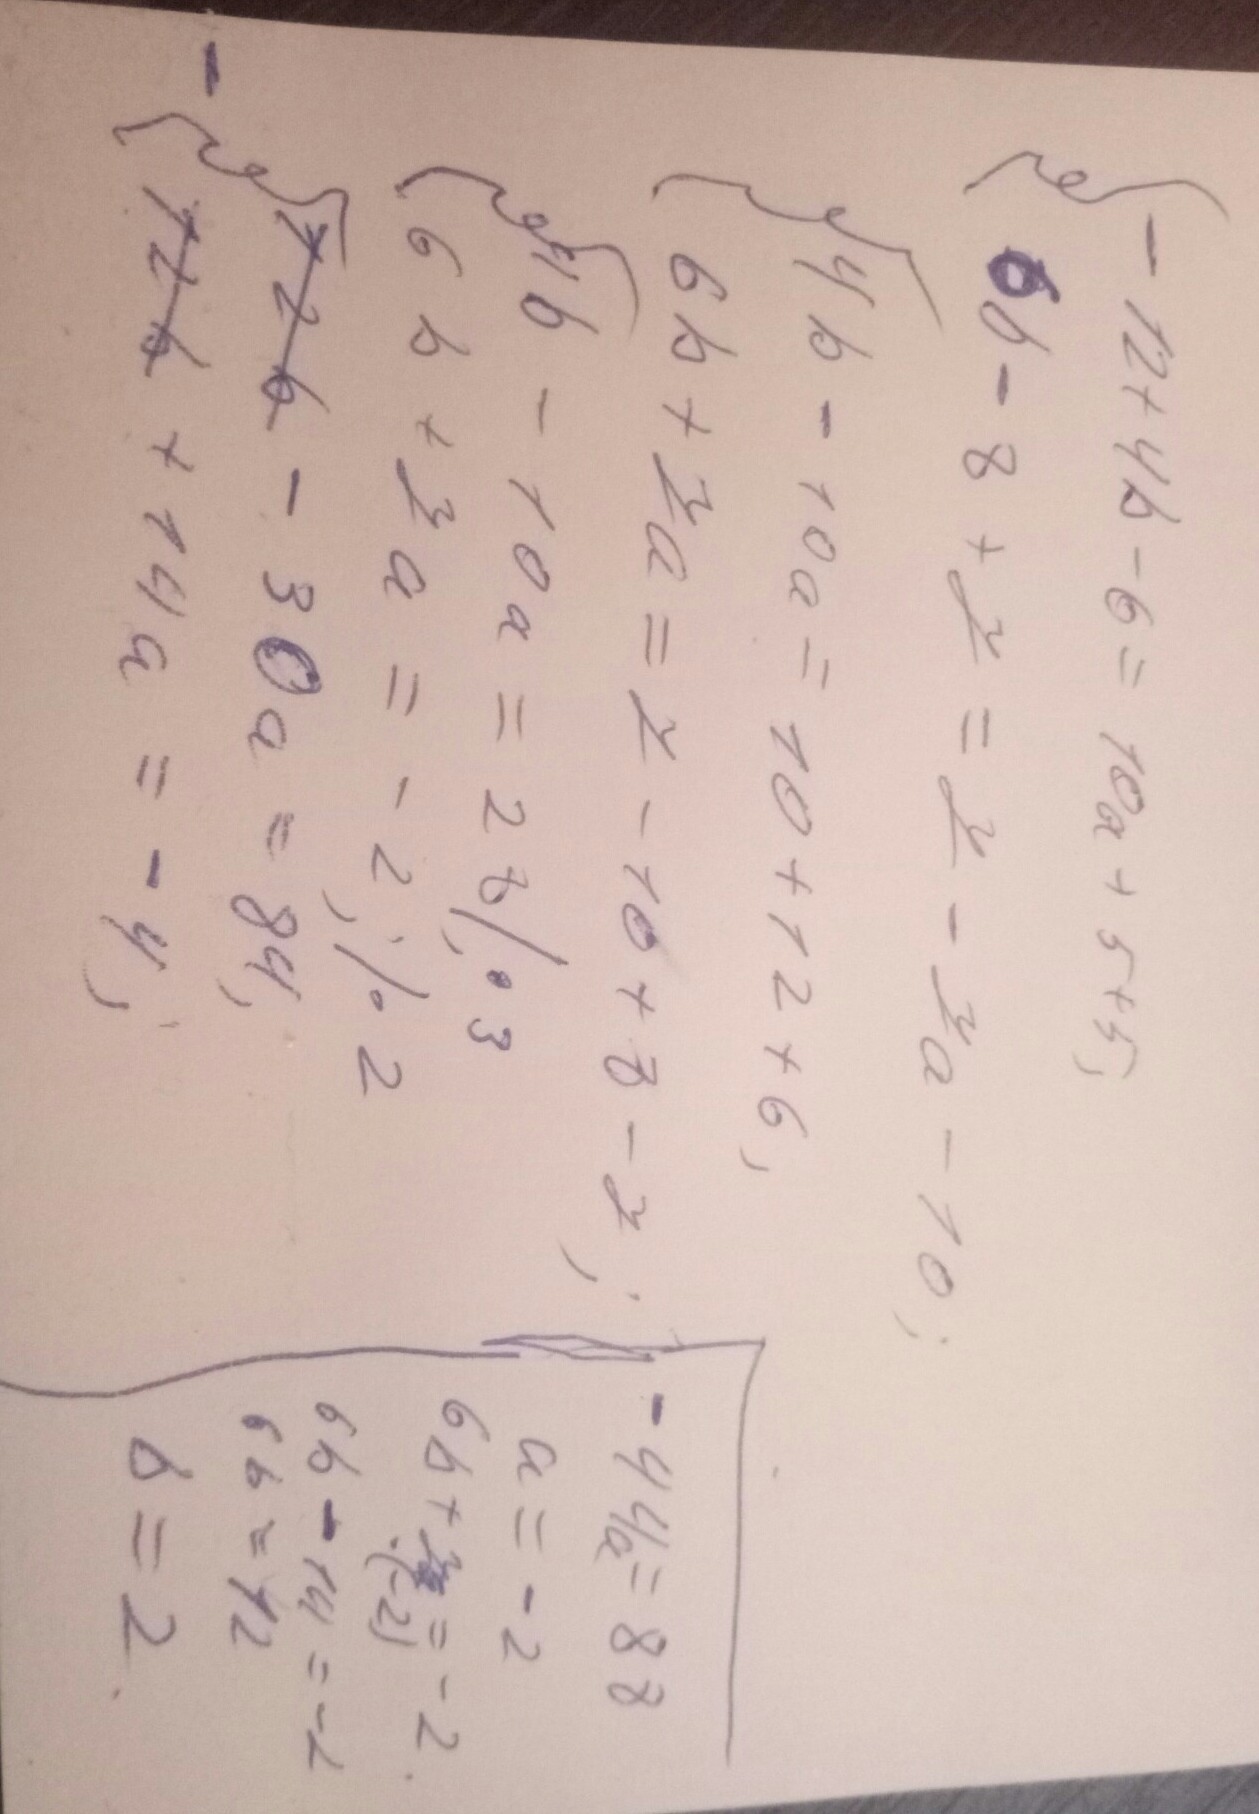 -12+4b-6=10a+5+5,
6b-8+7=7-7a-10;
4b-10a=10+12+6,
6b+7a=7-10+8-7;
4b-10a=28, /·3
6b+7a=-2; /·2
- 12b-30a=84,
12b+14a=-4;
-44a=88
a=-2
6b+7=-2
·(-2)
6b-14=-2
6b=12
b=2.